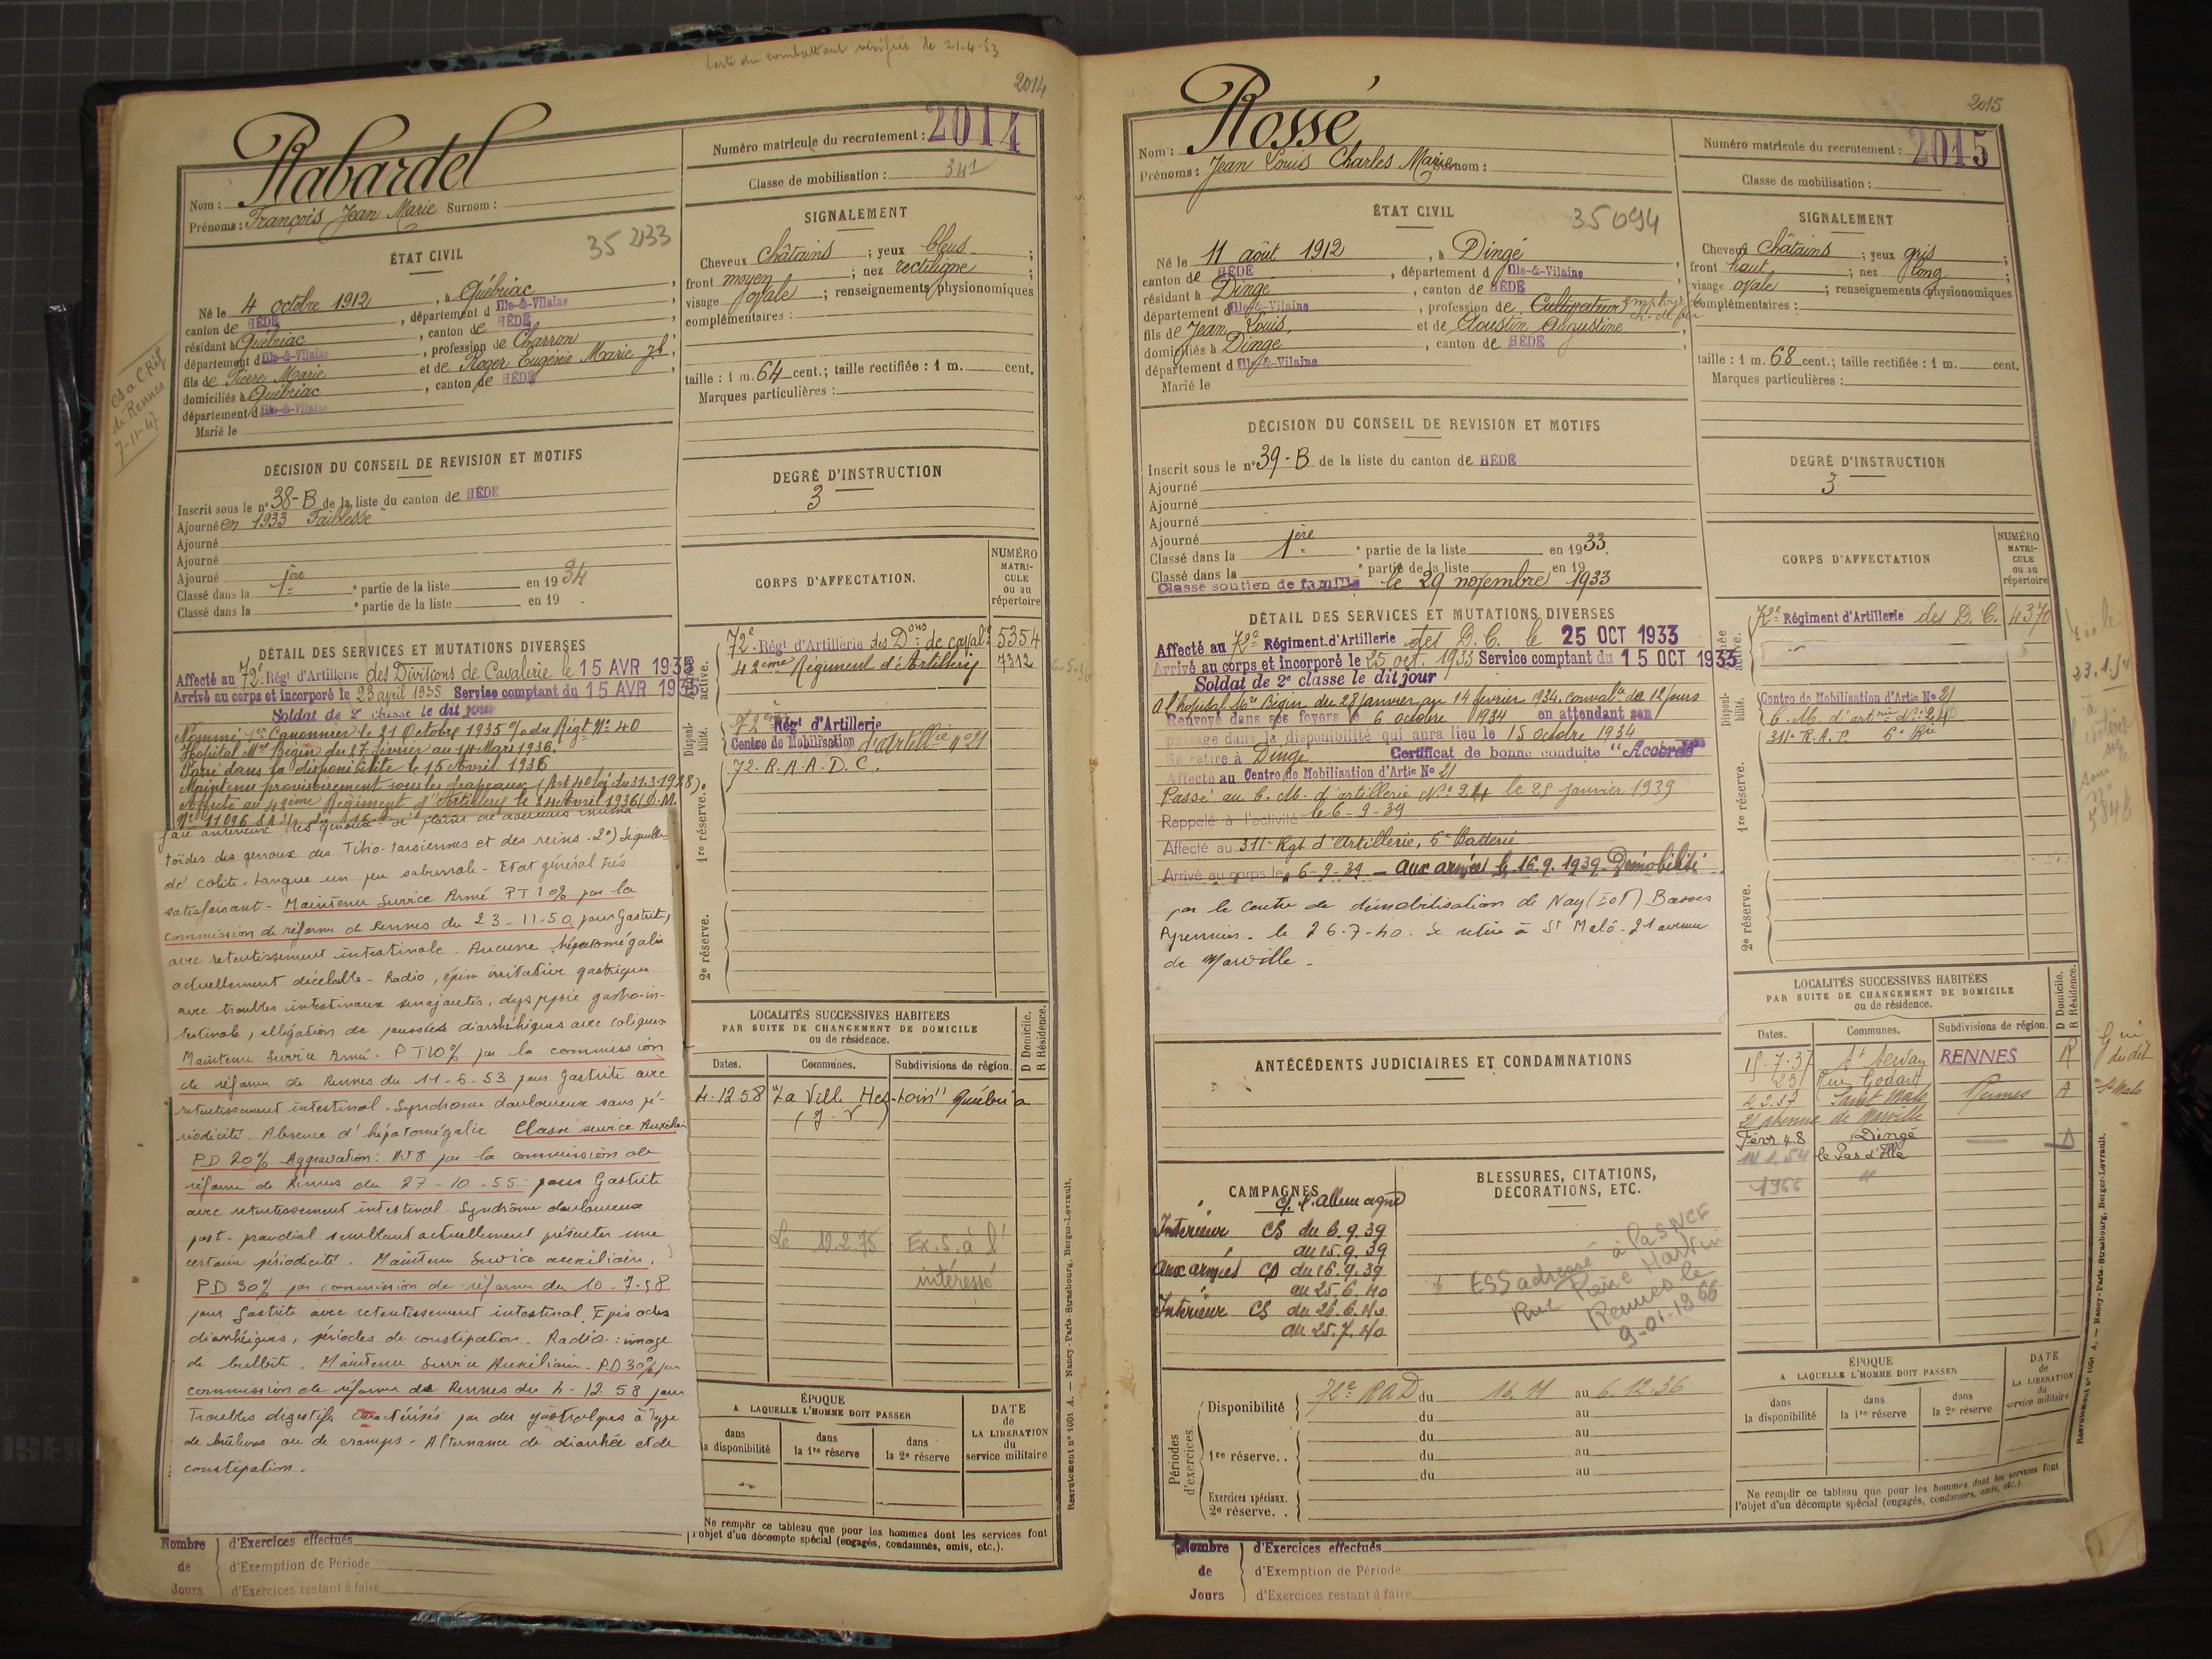 Carte du combattant vérifiée le 21-4-53
2014
Rabardel
Nom :
Prénoms : François Jean Marie Surnom :
Numéro matricule du recrutement : 2014
Classe de mobilisation : 341
ÉTAT CIVIL
35 233
Né le 4 octobre 1912, à Québriac,
canton de HÉDÉ, département d Ille-&-Vilaine
résidant à Québriac, canton de HÉDÉ,
département d Ille-&-Vilaine, profession de Charron
fils de Pierre Marie et de Roger Eugénie Marie
domiciliés à Québriac, canton de HÉDÉ,
département d Ille-&-Vilaine
Marié le
de Rennes
7-11-47
SIGNALEMENT
Cheveux Châtains ; yeux bleus ;
front moyen ; nez rectiligne ;
visage ovale ; renseignements physionomiques
complémentaires :
taille : 1 m. 64 cent.; taille rectifiée : 1 m. cent.
Marques particulières :
DÉCISION DU CONSEIL DE REVISION ET MOTIFS
Inscrit sous le n° 38-B de la liste du canton de HÉDÉ
Ajourné en 1933 Faiblesse
Ajourné
Ajourné
Ajourné
Classé dans la 1ère partie de la liste en 1934
Classé dans la e partie de la liste en 19 .
DEGRÉ D'INSTRUCTION
3
CORPS D'AFFECTATION.
NUMÉRO
MATRI-
CULE
ou au
répertoire
Armée active.
72e Régt d'Artillerie des Dons de caval. 5354
42ème Régiment d'Artillerie 7312
Disponi-
bilité.
72ème Régt d'Artillerie
Centre de Mobilisation d'Artillerie n° 21
72. R.A.A.D.C.
1re réserve.
2e réserve.
DÉTAIL DES SERVICES ET MUTATIONS DIVERSES
Affecté au 72e Régt d'Artillerie des Divisions de Cavalerie le 15 AVR 1935
Arrivé au corps et incorporé le 23 avril 1935 Service comptant du 15 AVR 1935
Soldat de 2e classe le dit jour
Nommé 1er Canonnier le 21 Octobre 1935 O/ du Régt N° 40
Hôpital Mre Bégin du 27 février au 14 Mars 1936.
Passé dans la disponibilité le 15 Avril 1936
Maintenu provisoirement sous les drapeaux (Art 40 loi du 31.3.1928).
Affecté au 42ème Régiment d'Artillerie le 24 Avril 1936 (D.M.
N° 11096
toïdes des genoux des Tibio-tarsiennes et des reins. 2°) Séquelles
de colite. Langue un peu saburrale - Etat général très
satisfaisant - Maintenu Service Armé PT 10% par la
commission de réforme de Rennes du 23-11-50 pour Gastrite,
avec retentissement intestinale. Aucune hépatomégalie
actuellement décelable - Radio, épine irritative gastrique
avec troubles intestinaux surajoutés, dyspepsie gastro-in-
testinale, allégation de poussées diarrhéiques avec coliques
Maintenu Service Armé. PT 10% par la commission
de réforme de Rennes du 11-6-53 pour Gastrite avec
retentissement intestinal. Syndrome douloureux sans pé-
riodicité. Absence d'hépatomégalie. Classé service Auxiliaire
PD 20% Aggravation : par la commission de
réforme de Rennes du 27-10-55 pour Gastrite
avec retentissement intestinal. Syndrôme douloureux
post-prandial semblant actuellement présenter une
certaine périodicité. Maintenu Service auxiliaire.
PD 30% par commission de réforme du 10-7-58
pour Gastrite avec retentissement intestinal. Episodes
diarrhéiques, périodes de constipation. Radio : image
de bulbite. Maintenu Service Auxiliaire. PD 30% par
commission de réforme de Rennes du 4-12 58 pour
Troubles digestifs caractérisés par des gastralgies à type
de brûlures ou de crampes. Alternance de diarrhée et de
constipation.
LOCALITÉS SUCCESSIVES HABITÉES
PAR SUITE DE CHANGEMENT DE DOMICILE
ou de résidence.
D Domicile.
R Résidence.
Dates. Communes. Subdivisions de région.
4.12.58 "La Ville Hes-toin" Québriac
(J-V)
Le 19.2.75 Ex.S. à l'
intéressé
ÉPOQUE
A LAQUELLE L'HOMME DOIT PASSER
dans
la disponibilité
dans
la 1re réserve
dans
la 2e réserve
DATE
de
LA LIBÉRATION
du
service militaire
Ne remplir ce tableau que pour les hommes dont les services font
l'objet d'un décompte spécial (engagés, condamnés, omis, etc.).
Recrutement n° 1001 A. — Nancy-Paris-Strasbourg, Berger-Levrault.
Nombre d'Exercices effectués
de d'Exemption de Période
Jours d'Exercices restant à faire
2015
Rossé
Nom :
Prénoms : Jean Louis Charles Marie Surnom :
Numéro matricule du recrutement : 2015
Classe de mobilisation :
ÉTAT CIVIL
35094
Né le 11 août 1912, à Dingé,
canton de HÉDÉ, département d Ille-&-Vilaine
résidant à Dingé, canton de HÉDÉ
département d Ille-&-Vilaine, profession de Cultivateur employé ch. de fer
fils de Jean Louis, et de Aoustin Augustine
domiciliés à Dingé, canton de HÉDÉ
département d Ille-&-Vilaine
Marié le
SIGNALEMENT
Cheveux Châtains ; yeux gris ;
front haut ; nez long ;
visage ovale ; renseignements physionomiques
complémentaires :
taille : 1 m. 68 cent.; taille rectifiée : 1 m. cent.
Marques particulières :
DÉCISION DU CONSEIL DE REVISION ET MOTIFS
Inscrit sous le n° 39-B de la liste du canton de HÉDÉ
Ajourné
Ajourné
Ajourné
Ajourné
Classé dans la 1ère partie de la liste en 1933.
Classé dans la e partie de la liste en 19
Classé soutien de famille le 29 novembre 1933
DEGRÉ D'INSTRUCTION
3
CORPS D'AFFECTATION
NUMÉRO
MATRI-
CULE
ou au
répertoire
Armée active.
72e Régiment d'Artillerie des D.C. 4370
Disponi-
bilité.
Centre de Mobilisation d'Artie No 21
C.M. d'artrie N° 24
311e R.A.P. 6e Bie
1re réserve.
2e réserve.
23.1.54
DÉTAIL DES SERVICES ET MUTATIONS DIVERSES
Affecté au 72e Régiment d'Artillerie des D.C. le 25 OCT 1933
Arrivé au corps et incorporé le 25 oct. 1933 Service comptant du 15 OCT 1933
Soldat de 2e classe le dit jour
A l'hôpital Mre Bégin du 28 janvier au 14 février 1934. Convalce de 12 jours
Renvoyé dans ses foyers le 6 octobre 1934 en attendant son
passage dans la disponibilité qui aura lieu le 15 octobre 1934
Se retire à Dingé Certificat de bonne conduite "Accordé"
Affecté au Centre de Mobilisation d'Artie No 21
Passé au C.M. d'artillerie N° 24 le 25 janvier 1939
Rappelé à l'activité le 6-9-39
Affecté au 311e Rgt d'Artillerie, 6e Batterie
Arrivé au corps le 6-9-39 - aux armées le 16.9.1939. Démobilisé
par le Centre de démobilisation de Nay Basses
Pyrennées. le 26-7-40. Se retire à St Malô - 21 avenue
de Marville.
ANTÉCÉDENTS JUDICIAIRES ET CONDAMNATIONS
LOCALITÉS SUCCESSIVES HABITÉES
PAR SUITE DE CHANGEMENT DE DOMICILE
ou de résidence.
D Domicile.
R Résidence.
Dates. Communes. Subdivisions de région.
15.7.35 St Servan RENNES R
23 Rue Godard
4.2.37 Saint Malo Rennes A
21 avenue de Marville
Févr 48 Dingé — D
14.1.54 le Pas d'Ille
1966 "
St Malo
CAMPAGNES
c/ l'allemagne
Intérieur CS du 6.9.39
au 15.9.39
Aux armées CD du 16.9.39
au 25.6.40
Intérieur CS du 26.6.40
au 25.7.40
BLESSURES, CITATIONS,
DÉCORATIONS, ETC.
ESS adressé à la SNCF
Rue Pierre Martin
Rennes le
9-01-1966
Périodes
d'exercices.
Disponibilité 72e RAD du 16.11 au 6.12.36
du au
1re réserve. . du au
du au
du au
Exercices spéciaux.
2e réserve. .
ÉPOQUE
A LAQUELLE L'HOMME DOIT PASSER
dans
la disponibilité
dans
la 1re réserve
dans
la 2e réserve
DATE
de
LA LIBÉRATION
du
service militaire
Ne remplir ce tableau que pour les hommes dont les services font
l'objet d'un décompte spécial (engagés, condamnés, omis, etc.).
Recrutement n° 1001 A. — Nancy-Paris-Strasbourg, Berger-Levrault.
Nombre d'Exercices effectués
de d'Exemption de Période
Jours d'Exercices restant à faire